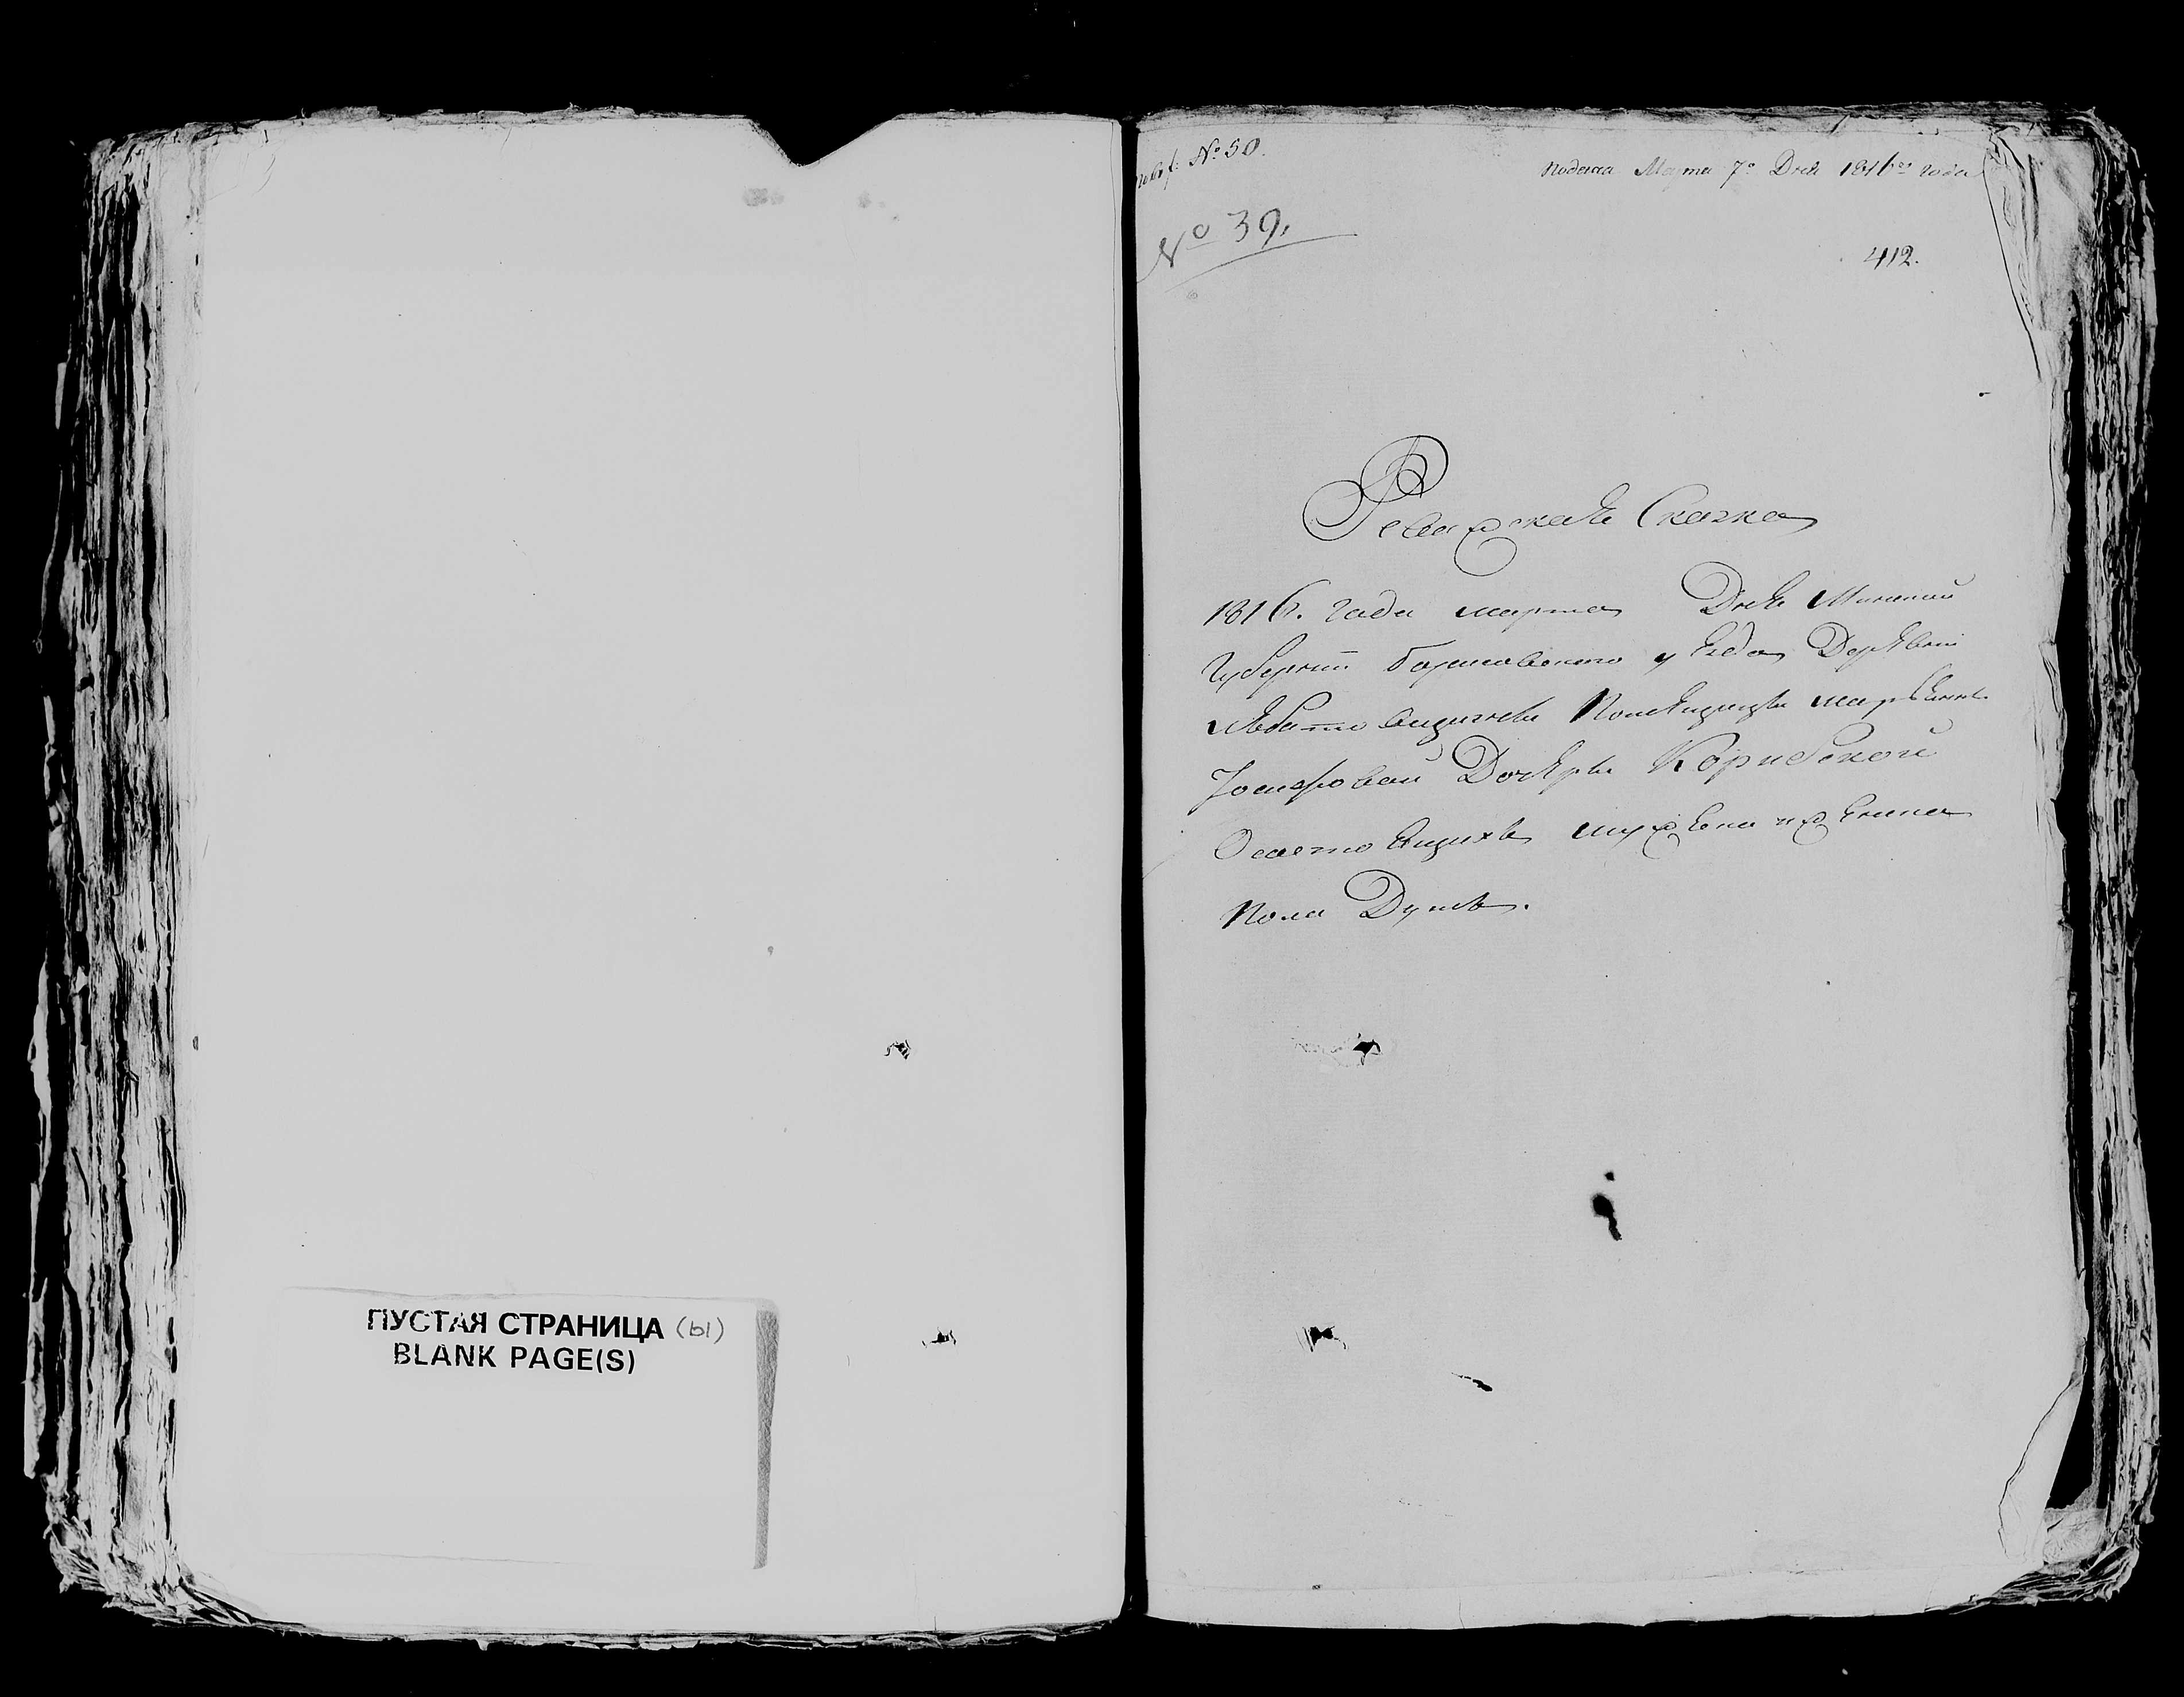 ПУСТАЯ СТРАНИЦА (ы)
BLANK PAGE(S)
№ 50.
Подана Марта 7го Дня 1816го года
№ 39.
412.
Ревизская Сказка
1816. года марта Дня Минской
Губернии Борисовского уезда Деревни
Помещицы марьянны
Дочери Корибской
о мужеска и женска
Пола Душъ.